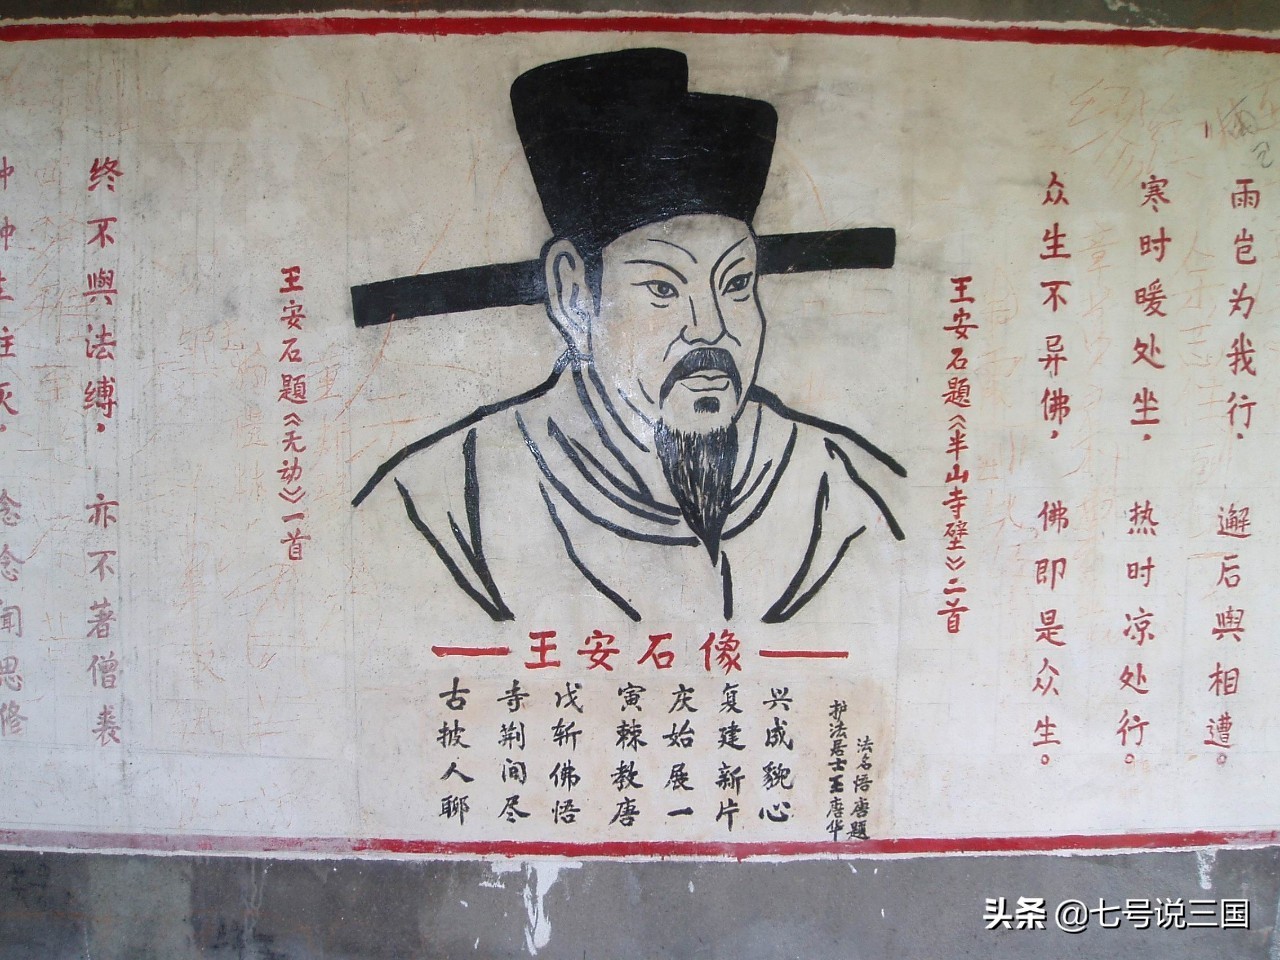 雨岂为我行，邂后與相遭。
寒时暖处坐，热时凉处行。
众生不异佛，佛即是众生。
王安石題《半山寺壁》二首
生住灭，念念闻思修
终不與法缚，亦不著僧裘
王安石題《无动》一首
王安石像
古寺戊寅庆复兴
披荆斩棘始建成
人间佛教展新貌
聊尽悟唐一片心
护法居士王唐华
法名悟唐題
头条 @七号说三国